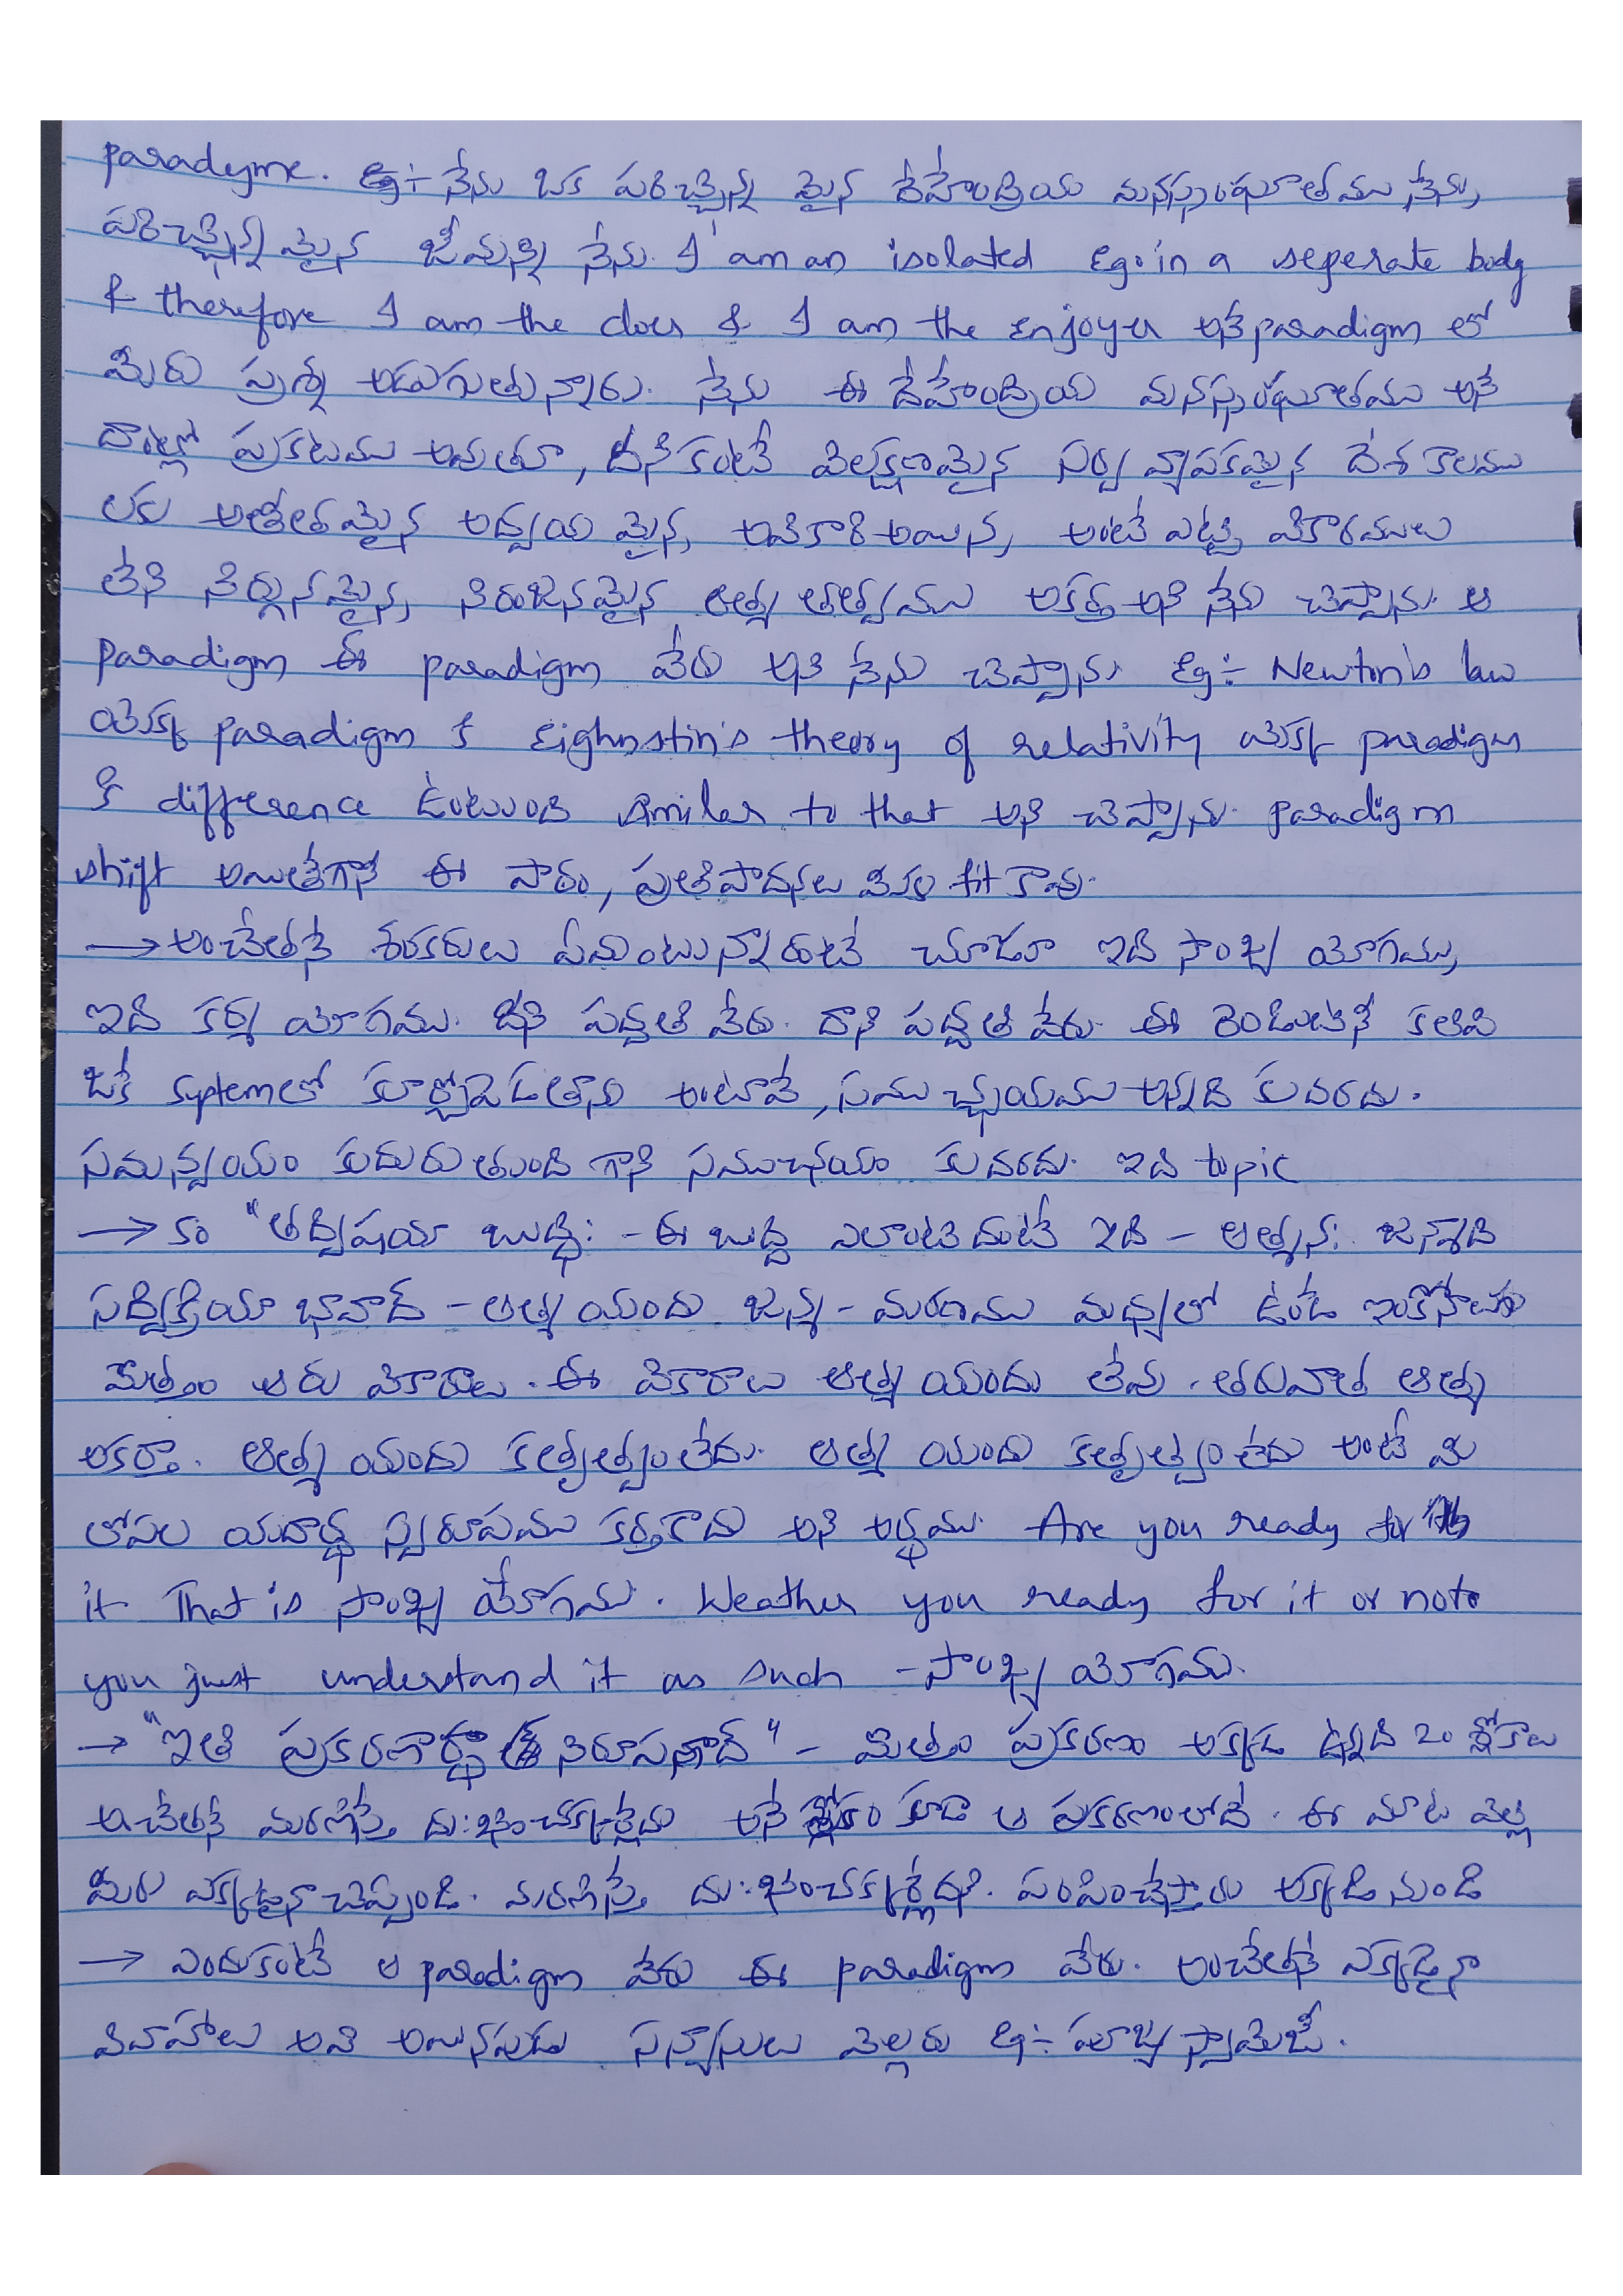 paradyme. Eg:- నేను ఒక పరిచ్ఛిన్న మైన దేహేంద్రియ మనస్సంఘాతము నేను,
పరిచ్ఛిన్న మైన జీవున్ని నేను. I am an isolated Ego in a seperate body
& therefore I am the doer & I am the enjoyer అనే paradigm లో
మీరు ప్రశ్న అడుగుతున్నారు. నేను ఈ దేహేంద్రియ మనస్సంఘాతము అనే
దాంట్లో ప్రకటము అవుతూ, దీనికంటే విలక్షణమైన సర్వ వ్యాపకమైన దేశ కాలము
లకు అతీతమైన అద్వయ మైన, అవికారి అయిన, అంటే ఎట్టి వికారములు
లేని నిర్గునమైన, నిరంజనమైన ఆత్మ తత్వము అకర్త అని నేను చెప్పాను. ఆ
paradigm ఈ paradigm వేరు అని నేను చెప్పాను Eg:- Newton's law
యొక్క paradigm కి Eighnstin's theory of relativity యొక్క paradigm
కి difference ఉంటుంది similar to that అని చెప్పాను. paradigm
shift అయితేగానీ ఈ పాఠం, ప్రతిపాదనలు fit కావు.
→ అంచేతనే శంకరులు ఏమంటున్నారంటే చూడూ ఇది సాంఖ్య యోగము,
ఇది కర్మ యోగము. దీని పద్ధతి వేరు. దాని పద్ధతి వేరు. ఈ రెండింటినీ కలిపి
ఒకే systemలో కూర్చోపెడతాను అంటావే, సముచ్ఛయము అన్నది కుదరదు.
సమన్వయం కుదురుతుంది గాని సముచ్ఛయం కుదరదు. ఇది topic
→ శం "తద్విషయా బుద్ధి: - ఈ బుద్ధి ఎలాంటిదంటే ఇది - ఆత్మన: జన్మాది
షడ్విక్రియా భావాద్ - ఆత్మ యందు జన్మ - మరణము మధ్యలో ఉండే ఇంకోనాలుగు
మొత్తం ఆరు వికారాలు. ఈ వికారాలు ఆత్మ యందు లేవు. తరువాత ఆత్మ
అకర్తా. ఆత్మ యందు కర్తృత్వం లేదు. ఆత్మ యందు కర్తృత్వం లేదు అంటే మీ
లోపల యదార్థ స్వరూపము కర్తకాదు అని అర్థము. Are you ready for
it That is సాంఖ్య యోగము. Weather you ready for it or note
you just understand it as such - సాంఖ్య యోగము.
→ "ఇతి ప్రకరణార్థ నిరూపణాద్" - మొత్తం ప్రకరణం అక్కడ ఉన్నది 20 శ్లోకాలు
అచేతనే మరణిస్తే దు:ఖించక్కర్లేదు అనే శ్లోకం కూడా ఆ ప్రకరణంలోదే. ఈ మాట వెళ్లి
మీరు ఎక్కడైనా చెప్పండి. మరణిస్తే దు:ఖించక్కర్లేదని. పంపించేస్తారు అక్కడి నుండి
→ ఎందుకంటే ఆ paradigm వేరు ఈ paradigm వేరు. అంచేతనే ఎక్కడైనా
వివాహాలు అవి అయినపుడు సన్యాసులు వెల్లరు Eg:- పూజ్య స్వామిజీ.